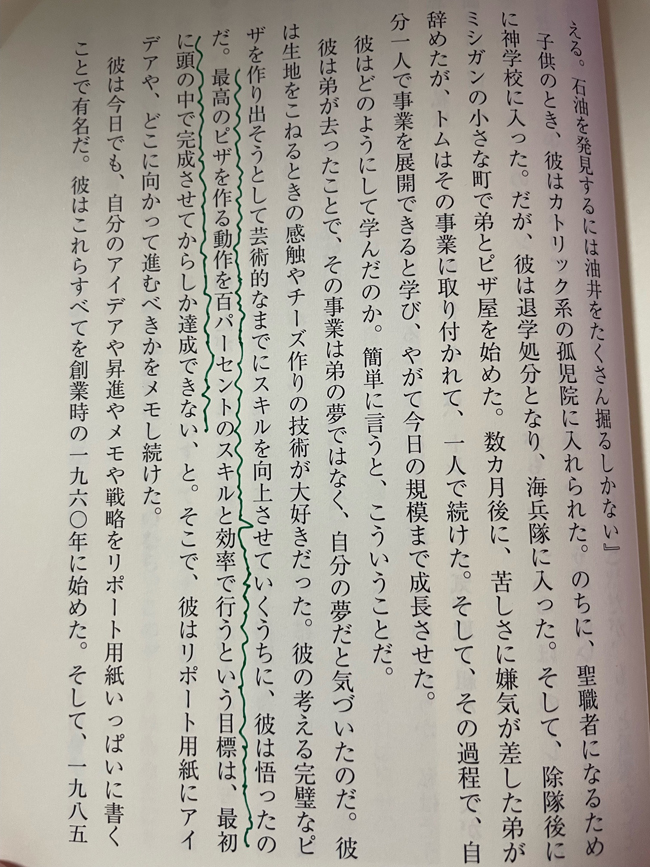 える。石油を発見するには油井をたくさん掘るしかない』
子供のとき、彼はカトリック系の孤児院に入れられた。のちに、聖職者になるため
に神学校に入った。だが、彼は退学処分となり、海兵隊に入った。そして、除隊後に
ミシガンの小さな町で弟とピザ屋を始めた。数カ月後に、苦しさに嫌気が差した弟が
辞めたが、トムはその事業に取り付かれて、一人で続けた。そして、その過程で、自
分一人で事業を展開できると学び、やがて今日の規模まで成長させた。
彼はどのようにして学んだのか。簡単に言うと、こういうことだ。
彼は弟が去ったことで、その事業は弟の夢ではなく、自分の夢だと気づいたのだ。彼
は生地をこねるときの感触やチーズ作りの技術が大好きだった。彼の考える完璧なピ
ザを作り出そうとして芸術的なまでにスキルを向上させていくうちに、彼は悟ったの
だ。最高のピザを作る動作を百パーセントのスキルと効率で行うという目標は、最初
に頭の中で完成させてからしか達成できない、と。そこで、彼はリポート用紙にアイ
デアや、どこに向かって進むべきかをメモし続けた。
彼は今日でも、自分のアイデアや昇進やメモや戦略をリポート用紙いっぱいに書く
ことで有名だ。彼はこれらすべてを創業時の一九六〇年に始めた。そして、一九八五